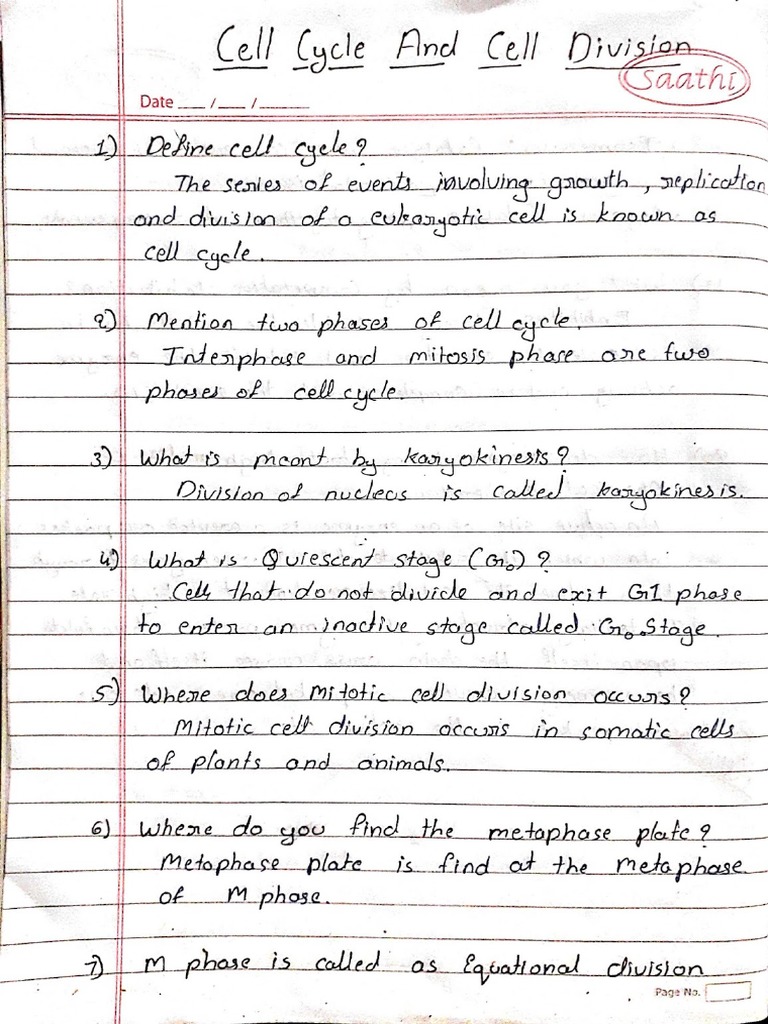 Cell Cycle And Cell Division
Saathi
Date ___ / ___ / ______
1) Define cell cycle?
The series of events involving growth, replication
and division of a eukaryotic cell is known as
cell cycle.
2) Mention two phases of cell cycle.
Interphase and mitosis phase are two
phases of cell cycle.
3) What is meant by karyokinesis?
Division of nucleus is called karyokinesis.
4) What is Quiescent stage (G₀)?
Cells that do not divide and exit G1 phase
to enter an inactive stage called G₀ Stage.
5) Where does Mitotic cell division occurs?
Mitotic cell division occurs in somatic cells
of plants and animals.
6) Where do you find the metaphase plate?
Metaphase plate is find at the metaphase
of M phase.
7) M phase is called as Equational division
Page No.